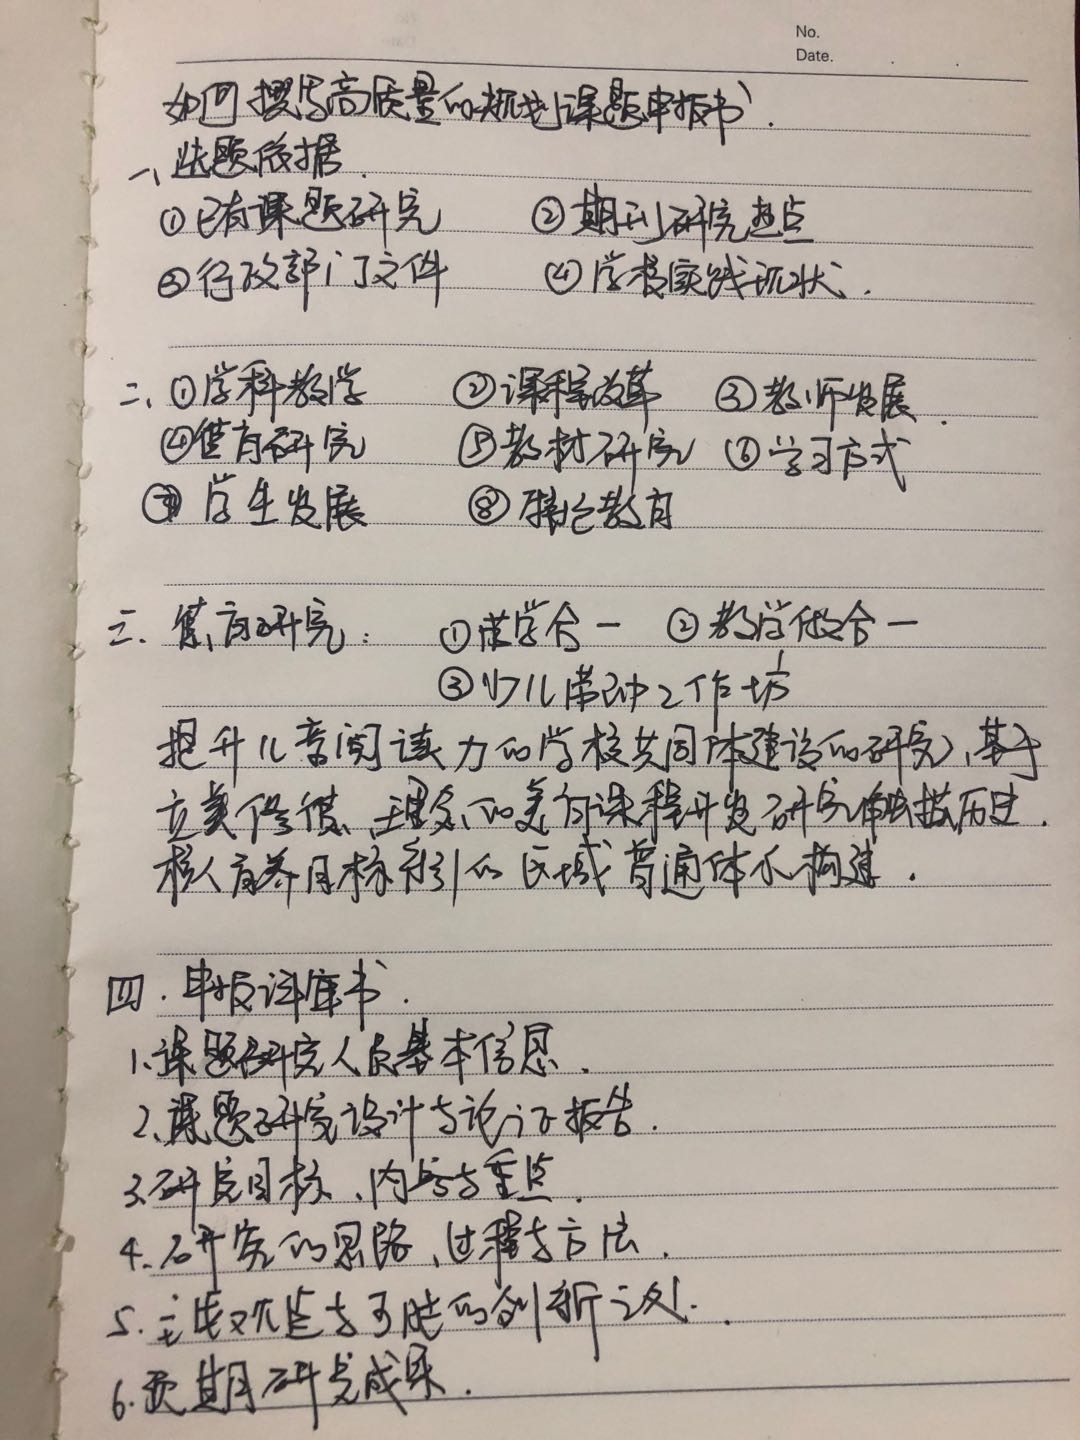 No.
Date.
如何撰写高质量的规划课题申报书.
一、选题依据.
①已有课题研究 ②期刊研究热点
③行政部门文件 ④学校实践现状.
二、①学科教学 ②课程改革 ③教师发展.
④德育研究 ⑤教材研究 ⑥学习方式
⑦学生发展 ⑧理论教育
三、德育研究: ① 学合一 ②教学做合一
③少儿 工作坊
提升儿童阅读力的学校共同体建设的研究,基于
立美修德、 的美育课程开发研究
核人育养目标 引的区域普通体 构建.
四.申报评审书.
1.课题研究人员基本信息.
2.课题研究设计与论证报告.
3.研究目标、内容与重点.
4.研究的思路、过程与方法.
5.主要观点与可能的创新之处.
6.预期研究成果.